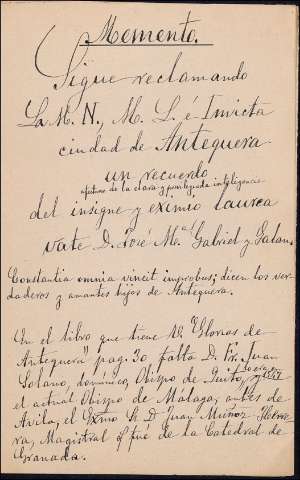 Memento.
Sigue reclamando
La M. N., M. L. é Invicta
ciudad de Antequera
un recuerdo
afectuoso de la clara y privilegiada inteligencia
del insigne y eximio laurea
vate D. José Mª Gabriel y Galan.
Constantia omnia vincit improbus; dicen los ver
daderos y amantes hijos de Antequera.
En el libro que tiene V. "Glorias de
Antequera" pag. 30 falta D. Fr. Juan
Solano, dominico, Obispo de Quito,
el actual Obispo de Malaga, antes de
Avila, el Exmo Sr D Juan Muñoz Herre
ra, Magistral q fué de la Catedral de
Granada.